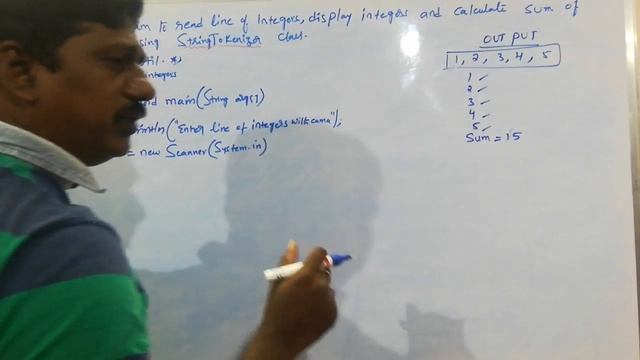 am to read line of Integers, display integers and calculate sum of
sing StringTokenizer class.
til. *;
integers
id main(String args[])
intln("Enter line of integers with cama");
= new Scanner(System.in)
OUTPUT
1, 2, 3, 4, 5
1
2
3
4
5
Sum = 15